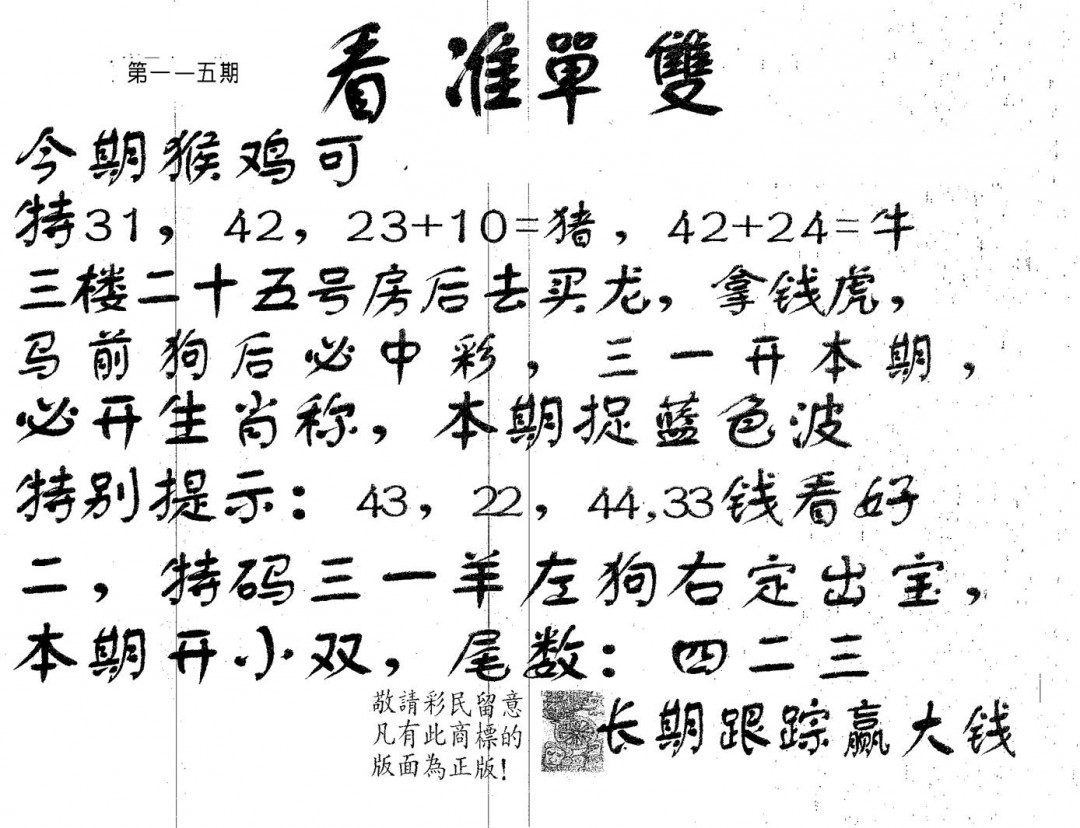 第一一五期
看准單雙
今期猴鸡可
特31，42，23+10=猪，42+24=牛
三楼二十五号房后去买龙，拿钱虎，
马前狗后必中彩，三一开本期，
必开生肖称，本期捉蓝色波
特别提示：43，22，44,33钱看好
二，特码三一羊左狗右定出宝，
本期开小双，尾数：四二三
敬請彩民留意
凡有此商標的
版面為正版!
长期跟踪赢大钱